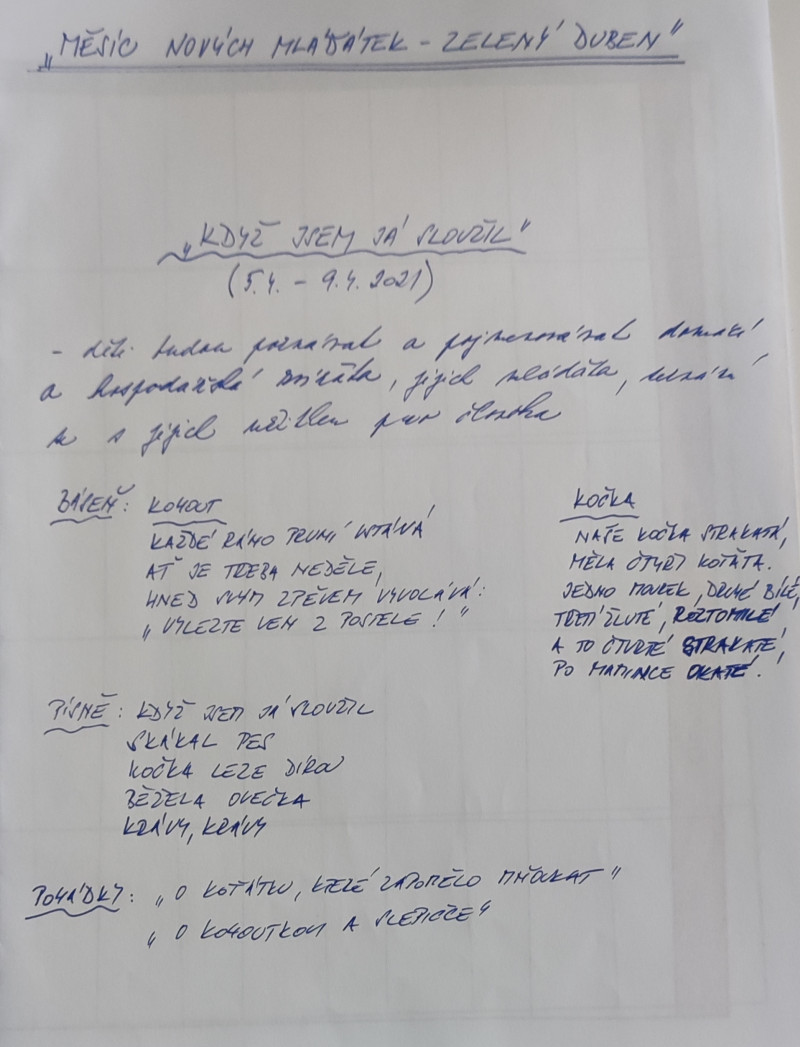 „MĚSÍC NOVÝCH MLÁĎÁTEK - ZELENÝ DUBEN"
„KDYŽ JSEM JÁ SLOUŽIL"
(5.4. - 9.4. 2021)
- děti budou poznávat a pojmenovávat domácí
a hospodářská zvířata, jejich mláďata, seznámí
se s jejich užitkem pro člověka
BÁSEŇ: KOHOUT
KAŽDÉ RÁNO PRVNÍ VSTÁVÁ
AŤ JE TŘEBA NEDĚLE,
HNED SVÝM ZPĚVEM VYVOLÁVÁ:
„VYLEZTE VEN Z POSTELE!"
KOČKA
NAŠE KOČKA STRAKATÁ,
MĚLA ČTYŘI KOŤATA.
JEDNO MOUREK, DRUHÉ BÍLÉ,
TŘETÍ ŽLUTÉ, ROZTOMILÉ
A TO ČTVRTÉ STRAKATÉ,
PO MAMINCE OKATÉ!
PÍSNĚ: KDYŽ JSEM JÁ SLOUŽIL
SKÁKAL PES
KOČKA LEZE DÍROU
BĚŽELA OVEČKA
KRÁVY, KRÁVY
POHÁDKY: „O KOŤÁTKU, KTERÉ ZAPOMĚLO MŇOUKAT"
„O KOHOUTKOVI A SLEPIČCE"